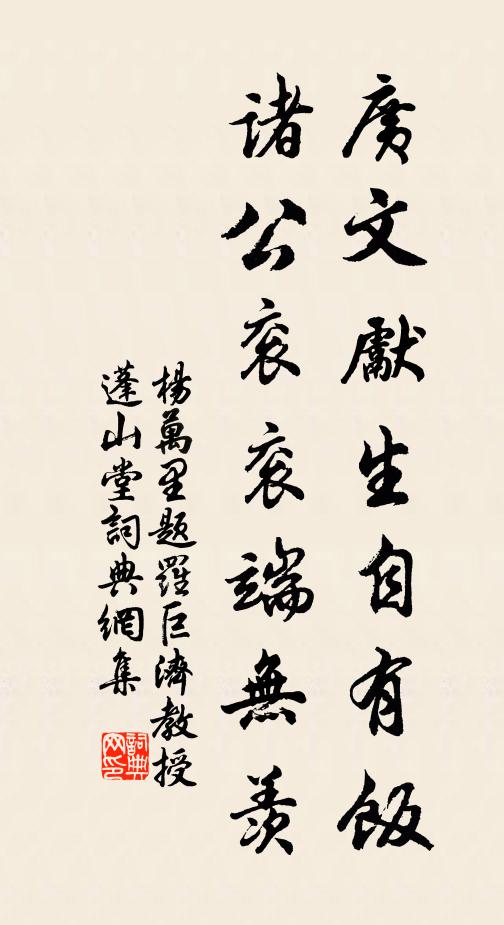 廣文獻生自有飯
諸公袞袞端無羨
楊萬里題羅巨濟教授
蓬山堂詞典網集
詞典网印